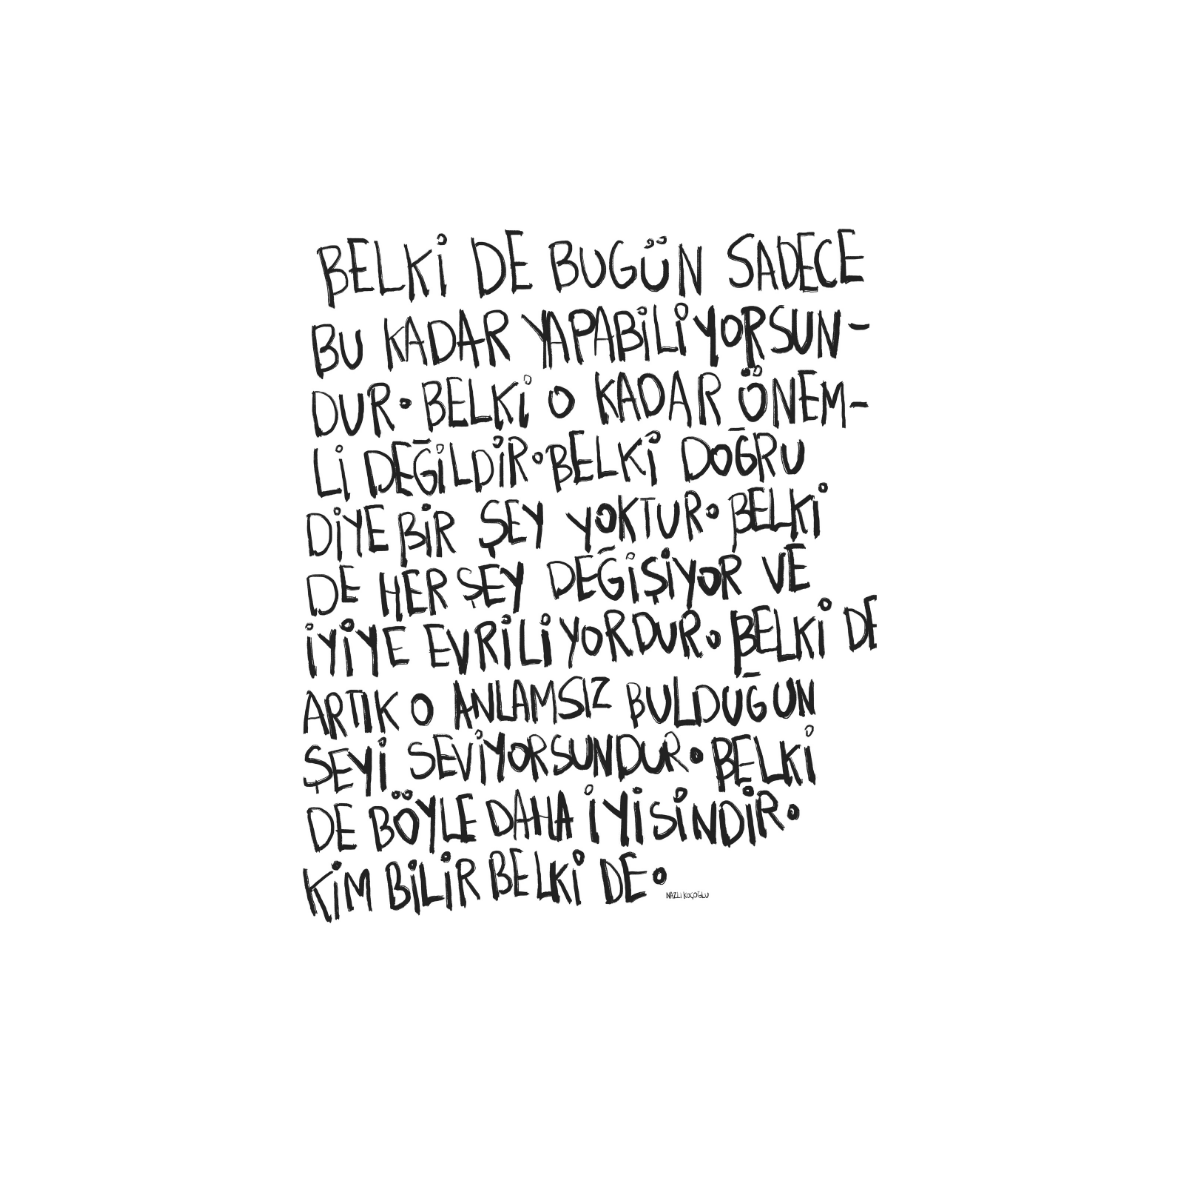 BELKİ DE BUGÜN SADECE
BU KADAR YAPABİLİYORSUN-
DUR. BELKİ O KADAR ÖNEM-
Lİ DEĞİLDİR. BELKİ DOĞRU
DİYE BİR ŞEY YOKTUR. BELKİ
DE HER ŞEY DEĞİŞİYOR VE
İYİYE EVRİLİYORDUR. BELKİ DE
ARTIK O ANLAMSIZ BULDUĞUN
ŞEYİ SEVİYORSUNDUR. BELKİ
DE BÖYLE DAHA İYİSİNDİR.
KİM BİLİR BELKİ DE.
NAZLI KOÇOĞLU